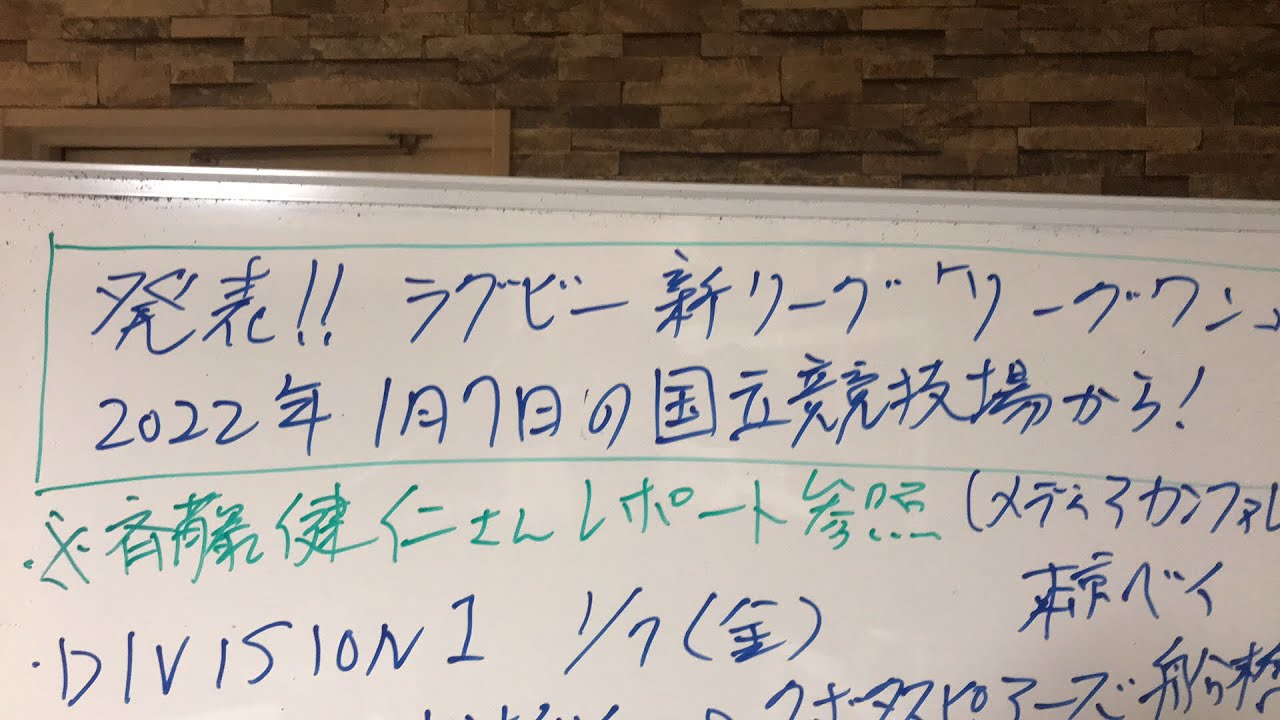 発表!! ラグビー新リーグ「リーグワン」
2022年 1月7日の国立競技場から!
※斉藤健仁さんレポート参照 (メディアカンファレ
・DIVISION 1 1/7 (金)
東京ベイ
クボタスピアーズ船橋